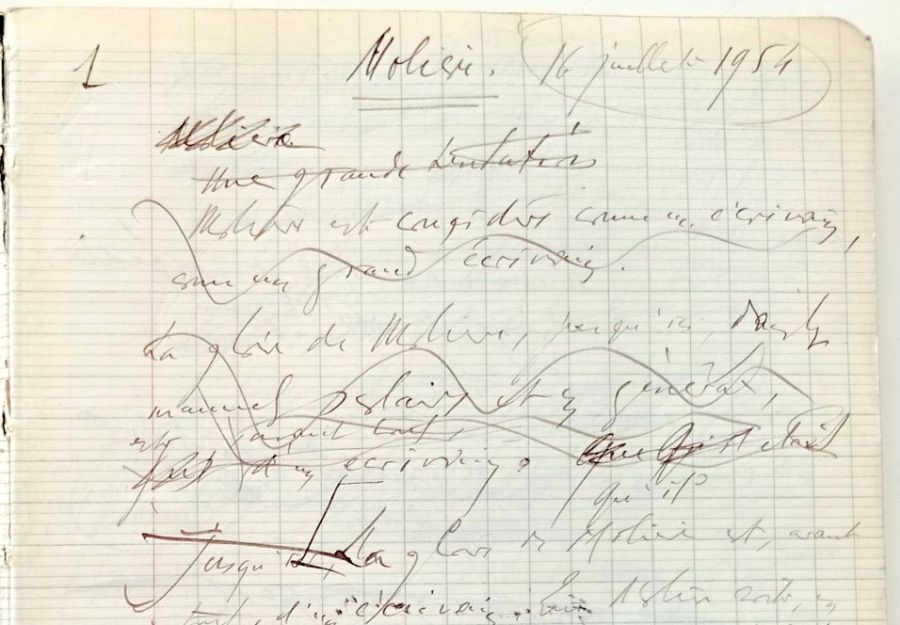 1 Molière. 16 juillet 1954
Molière
Une grande tentation
Molière est considéré comme un écrivain,
comme un grand écrivain.
La gloire de Molière, jusqu'ici, dans les
manuels scolaires et en général,
est, avant tout,
d'un écrivain.
qu'il
Jusqu'ici, La gloire de Molière est, avant
tout, d'un écrivain.